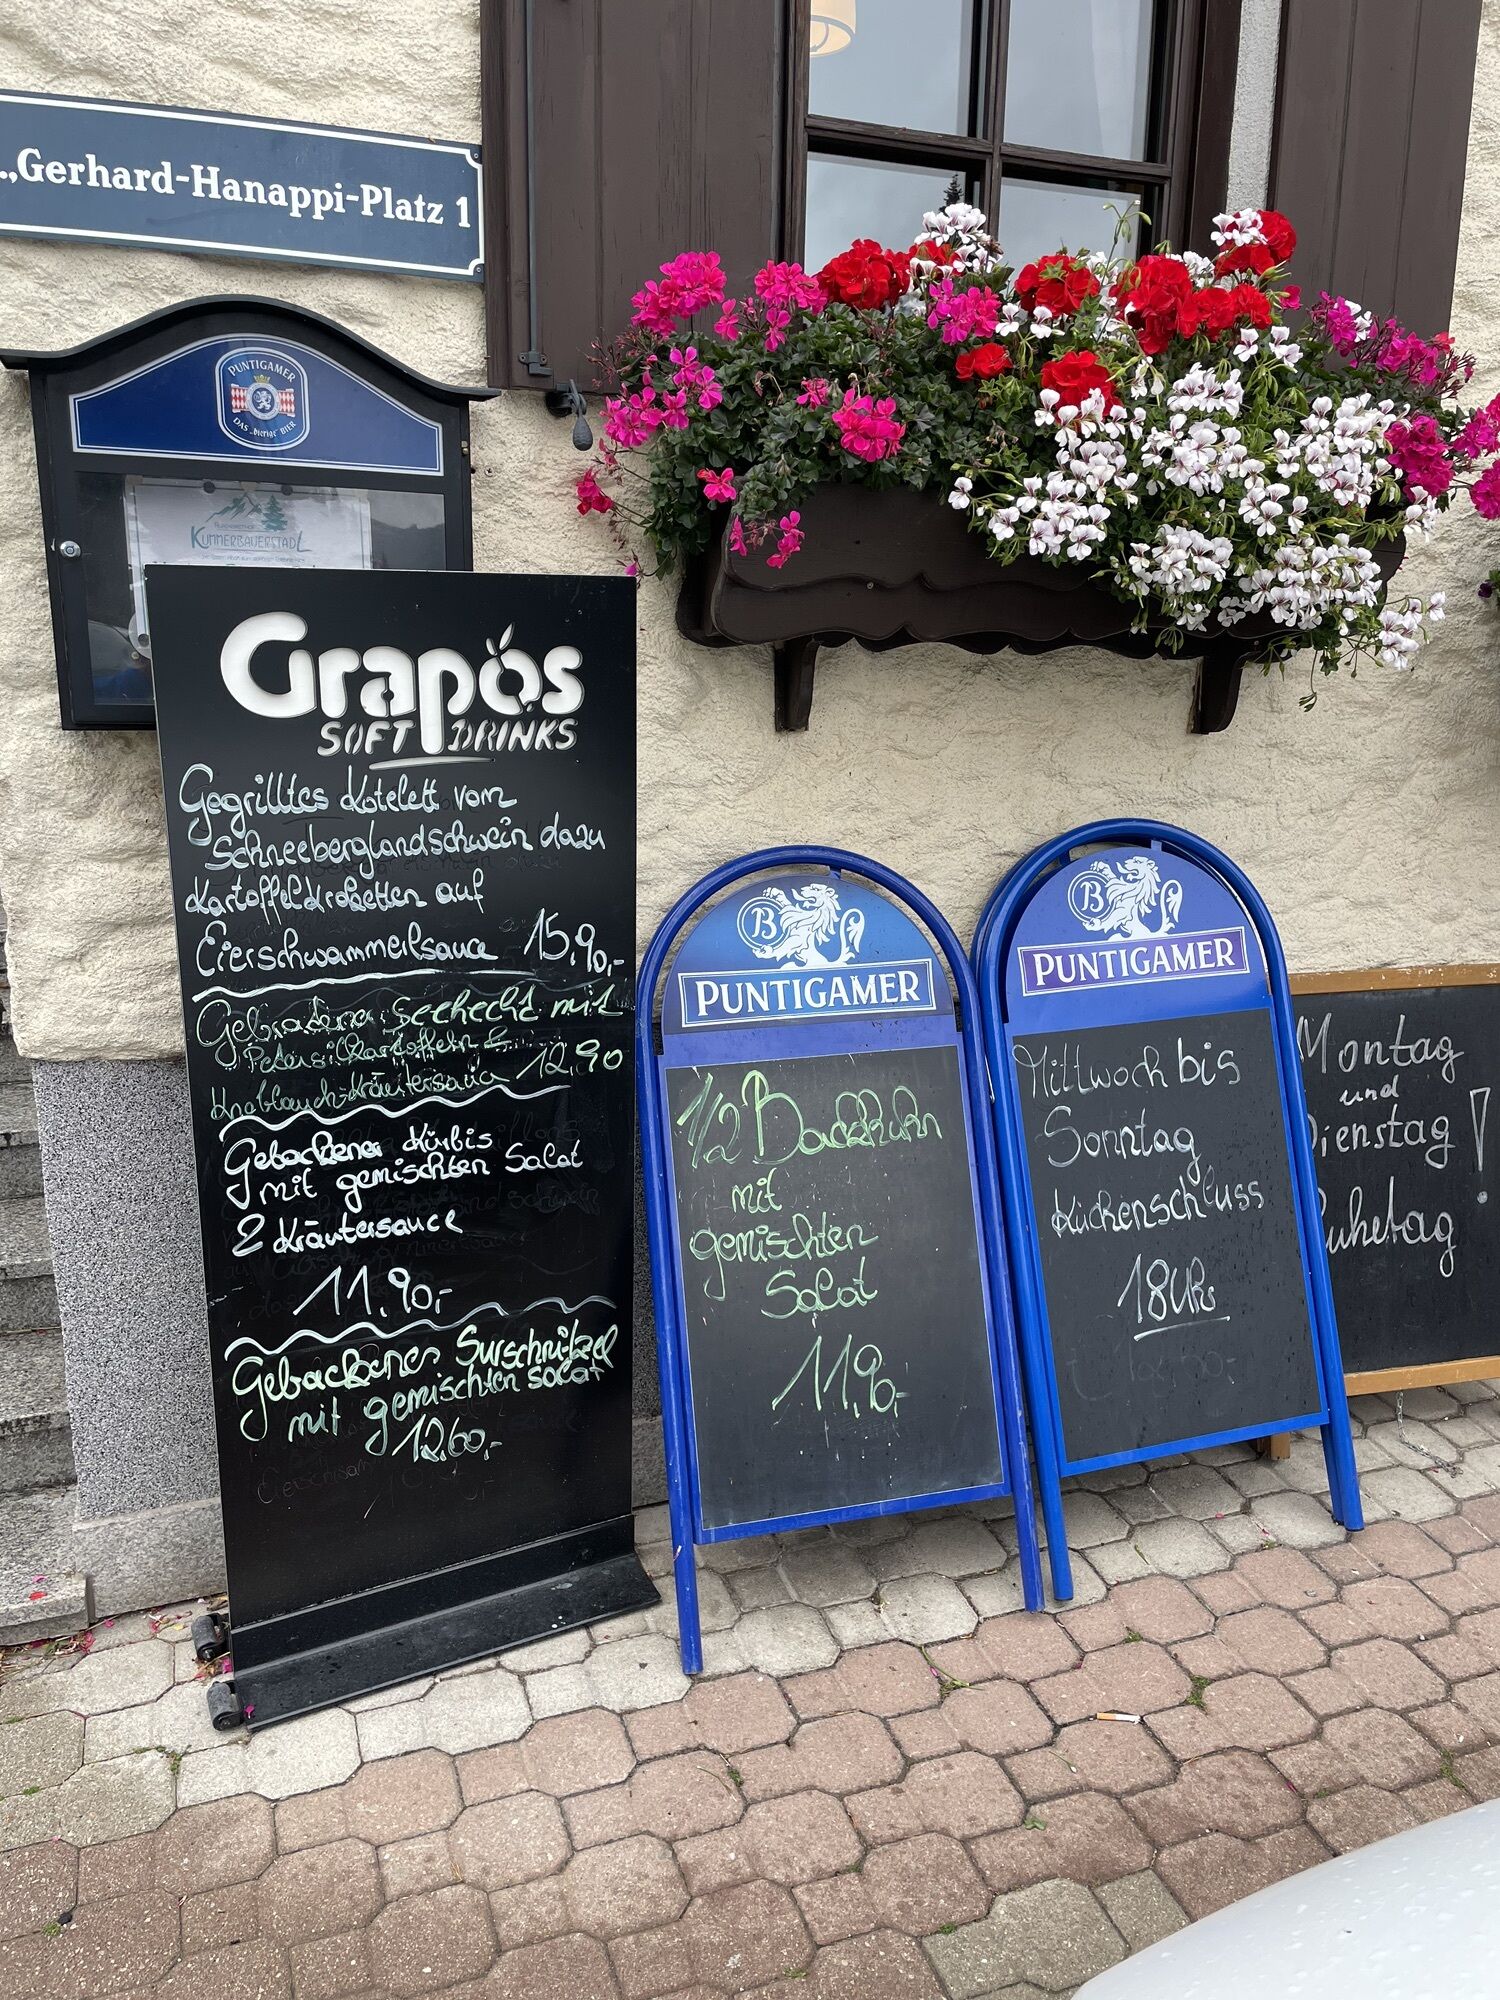 „Gerhard-Hanappi-Platz 1
PUNTIGAMER
DAS „bierige" BIER
KUMMERBAUERSTADL
Grapos
SOFT DRINKS
Gegrilltes Kotelett vom
Schneeberglandschwein dazu
Kartoffelkroketten auf
Eierschwammerlsauce 15,90,-
Gebratener Seehecht mit
Petersilkartoffeln &
Knoblauch-Kräutersauce 12,90
Gebackener Kürbis
mit gemischten Salat
& Kräutersauce
11,90,-
Gebackenes Surschnitzel
mit gemischten Salat
12,60,-
B
PUNTIGAMER
1/2 Backhuhn
mit
gemischten
Salat
11,90,-
B
PUNTIGAMER
Mittwoch bis
Sonntag
Küchenschluss
18 Uhr
Montag
und
Dienstag !
Ruhetag